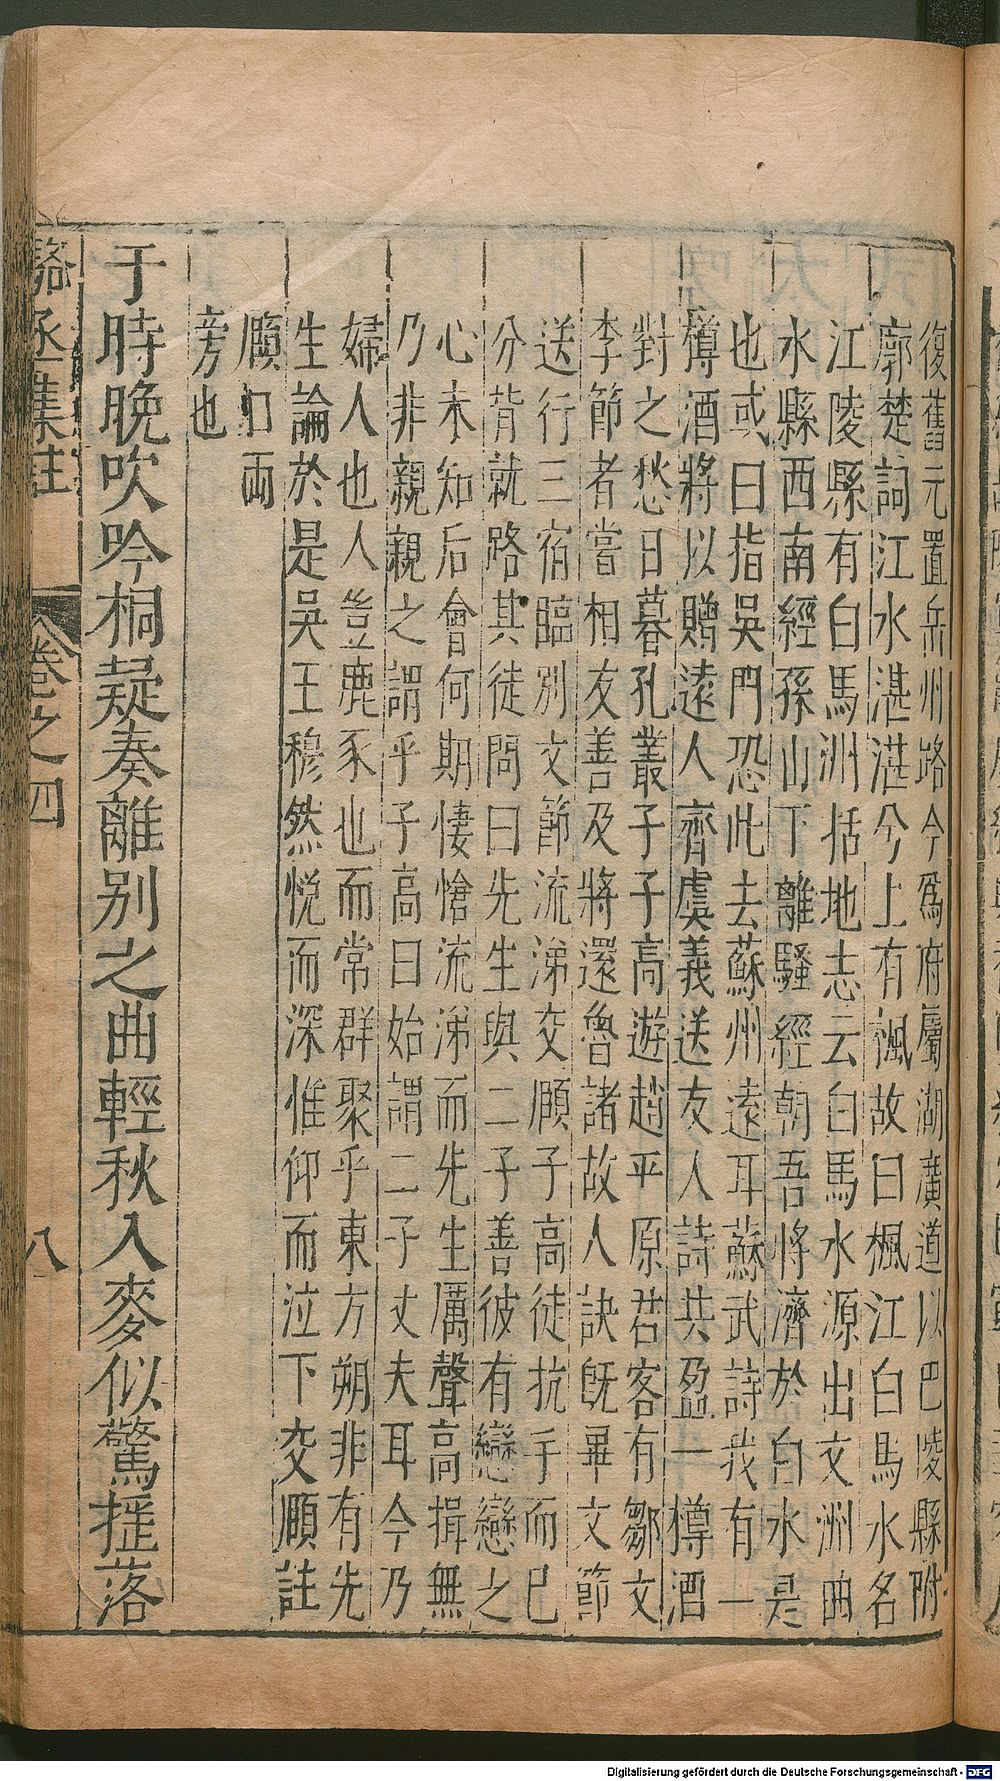 復舊元置岳州路今爲府屬湖廣道以巴陵縣附
廓楚詞江水湛湛兮上有楓故曰楓江白馬水名
江陵縣有白馬洲括地志云白馬水源出文洲曲
水縣西南經孫山下 離騷經朝吾將濟於白水是
也或曰指吳門恐此去蘇州遠耳蘇武詩我有一
樽酒將以贈遠人齊虞義送友人詩共盈一樽酒
對之愁日暮孔叢子子高遊趙平原君客有鄒文
李節者嘗相友善及將還魯諸故人訣旣畢文節
送行三宿臨別文節流涕交頤子高徒抗手而已
分背就路其徒問曰先生與二子善彼有戀戀之
心未知后會何期悽愴流涕而先生厲聲高揖無
乃非親親之謂乎子高曰始謂二子丈夫耳今乃
婦人也人豈鹿豕也而常群聚乎東方朔非有先
生論於是吳王穆然悅而深惟仰而泣下交頤註
頤口兩
旁也
于時晚吹吟桐疑奏離別之曲輕秋入麥似驚揺落
駱丞集註 卷之四 八
Digitalisierung gefördert durch die Deutsche Forschungsgemeinschaft - DFG